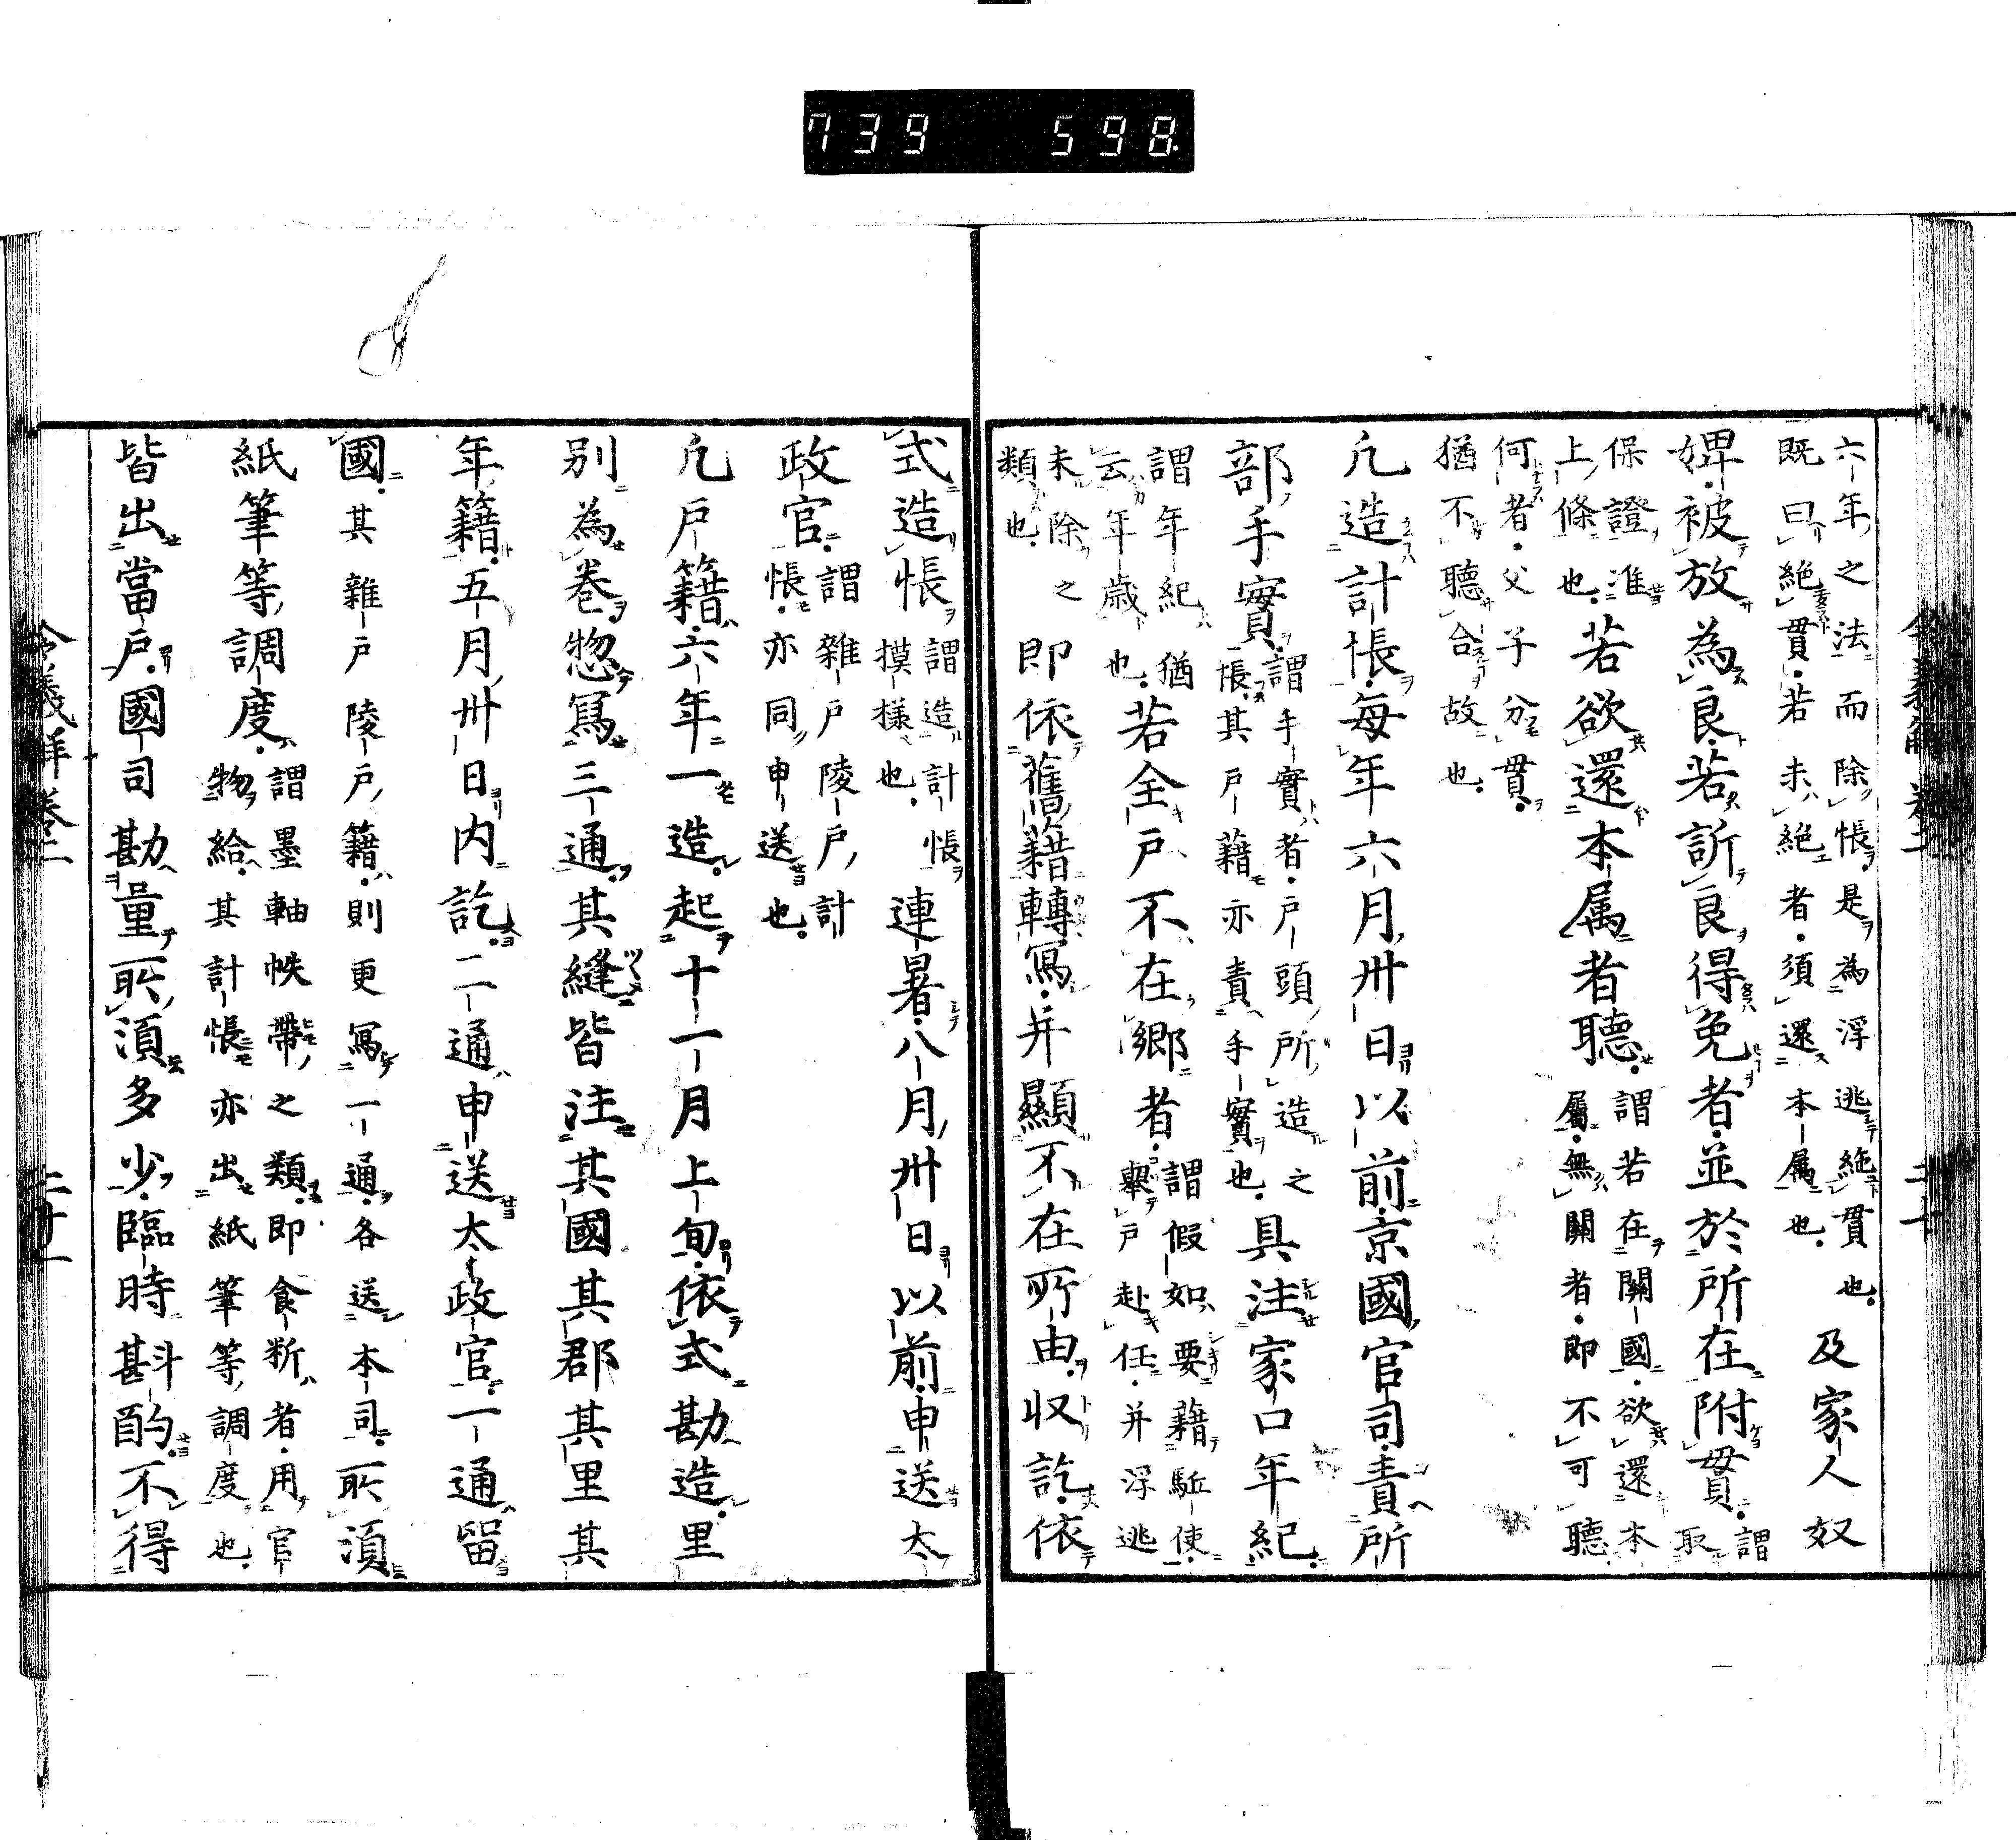 739 598
六年之法而除帳是為浮逃絶貫也
既曰絶貫若未絶者須還本属也
及家人奴
婢被放為良若訴良得免者並於所在附貫
謂
取
保證准
上條也
若欲還本属者聽
謂若在關國欲還本
屬無關者即不可聽
何者父子分貫
猶不聽合故也
凢造計帳毎年六月卅日以前京國官司責所
部手實
謂手實者戸頭所造之
帳其戸籍亦責手實也
具注家口年紀
謂年紀猶
云年歳也
若全戸不在郷者
謂假如要籍駈使
舉戸赴任并浮逃
未除之
類也
即依舊籍轉冩并顯不在所由収訖依
式造帳
謂造計帳
摸樣也
連署八月卅日以前申送太
政官
謂雜戸陵戸計
帳亦同申送也
凢戸籍六年一造起十一月上旬依式勘造里
別為巻惣冩三通其縫皆注其國其郡其里其
年籍五月卅日内訖二通申送太政官一通留
國其雜戸陵戸籍則更冩一通各送本司所湏
紙筆等調度
謂墨軸帙帶之類即食断者用官
物給其計帳亦出紙筆等調度也
皆出當戸國司勘量所湏多少臨時斟酌不得
令義解 巻二 二十一